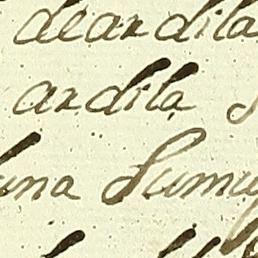 deardila
ardila
una Sumu